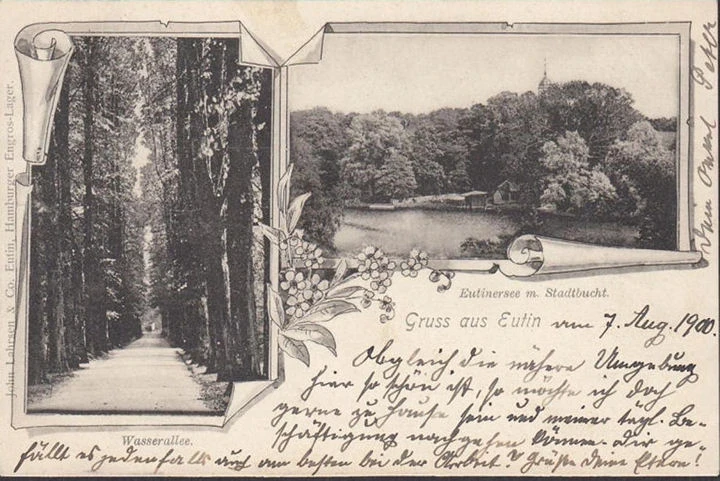 John Lahrsen & Co. Eutin, Hamburger Engros-Lager.
Wasserallee.
Eutinersee m. Stadtbucht.
Gruss aus Eutin am 7. Aug. 1900.
Obgleich die nähere Umgebung
hier so schön ist, so möchte ich doch
gerne zu Hause sein und meiner tägl. Be-
schäftigung nachgehen können. Dir ge-
fällt es jedenfalls auch am besten bei der Arbeit? Grüße deine Eltern!
Dein Onkel Peter